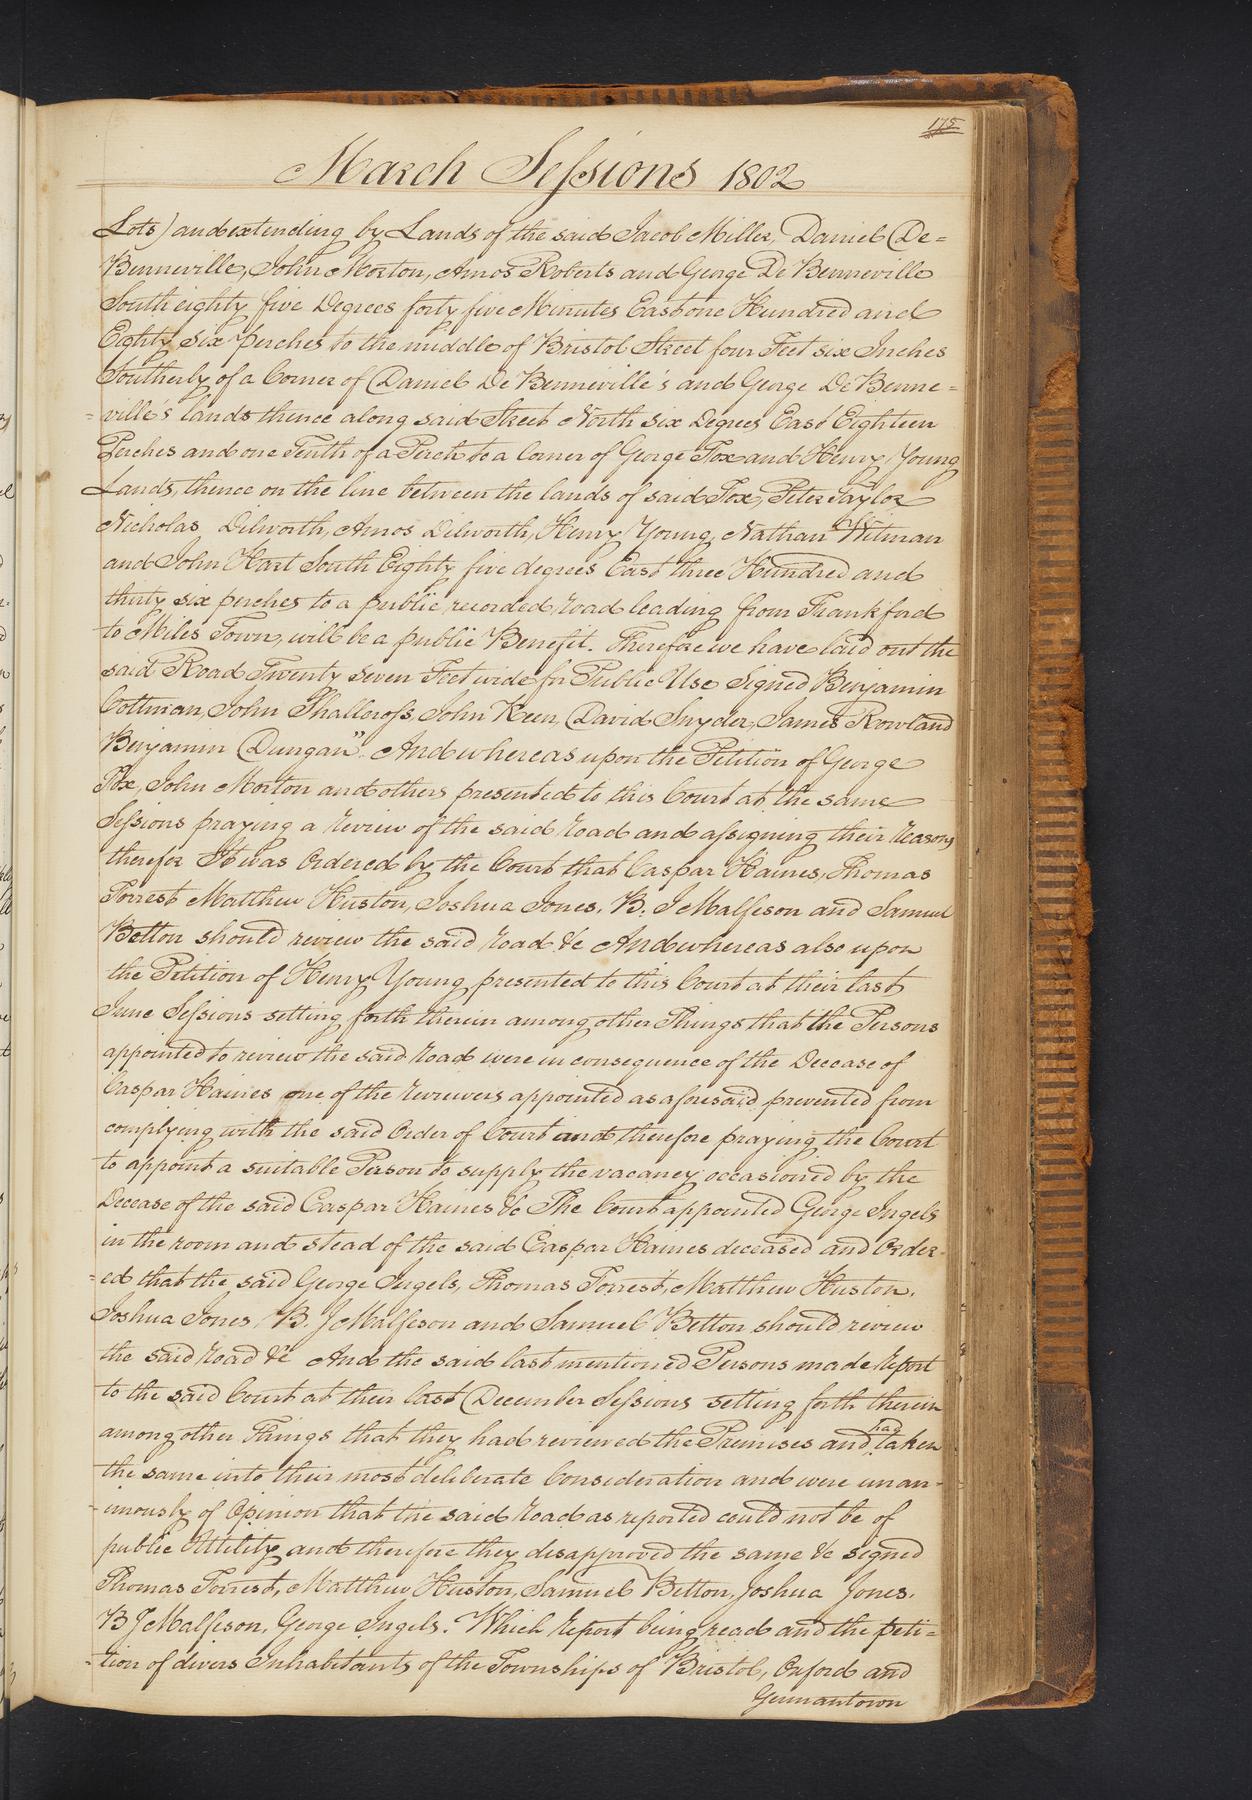 175
March Sessions 1802
Lots) and extending by Lands of the said Jacob Miller, Daniel De=
Benneville, John Morton, Amos Roberts and George De Benneville
South eighty five Degrees forty five Minutes East one Hundred and
Eighty six perches to the middle of Bristol Street four Feet six Inches
Southerly of a Corner of Daniel De Benneville's and George De Benne=
=ville's lands thence along said Street North six Degrees East Eighteen
Perches and one Tenth of a Perch to a Corner of George Fox and Henry Young
Lands, thence on the line between the lands of said Fox, Peter Taylor
Nicholas Dilworth, Amos Dilworth, Henry Young, Nathan Witman
and John Hart South Eighty five degrees East three Hundred and
thirty six perches to a public recorded road leading from Frankford
to Miles Town, will be a public Benefit. Therefore we have laid out the
said Road Twenty seven Feet wide for Public Use Signed Benjamin
Cottman, John Shallcross, John Keen, David Snyder, James Rowland
Benjamin Dungan". And whereas upon the Petition of George
Fox, John Morton and others presented to this Court at the same
Sessions praying a review of the said road and assigning their reasons
therefor It was Ordered by the Court that Caspar Haines, Thomas
Forrest Matthew Huston, Joshua Jones, B. J Malfeson and Samuel
Betton should review the said road &c And whereas also upon
the Petition of Henry Young presented to this Court at their last
June Sessions setting forth therein among other Things that the Persons
appointed to review the said road were in consequence of the Decease of
Caspar Haines one of the reviewers appointed as aforesaid prevented from
complying with the said Order of Court and therefore praying the Court
to appoint a suitable Person to supply the vacancy occasioned by the
Decease of the said Caspar Haines &c The Court appointed George Ingels
in the room and stead of the said Caspar Haines deceased and Order-
=ed that the said George Ingels, Thomas Forrest, Matthew Huston,
Joshua Jones, B. J Malfeson and Samuel Betton should review
the said road &c And the said last mentioned Persons made report
to the said Court at their last December Sessions setting forth therein
among other Things that they had reviewed the Premises and had taken
the same into their most deliberate Consideration and were unan-
-imously of Opinion that the said road as reported could not be of
public Utility and therefore they disapproved the same &c signed
Thomas Forrest, Matthew Huston, Samuel Betton, Joshua Jones,
B J Malfeson, George Ingels. Which report being read and the peti=
=tion of divers Inhabitants of the Townships of Bristol, Oxford and
Germantown